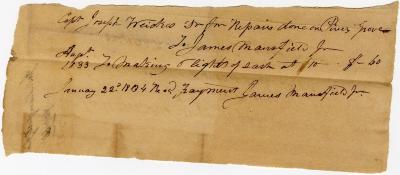 Capt Joseph Weickes Dr for Repairs done on Piney Grove
To James Mansfield Jr
Augt
1833 To Making 6 lights of sash at 10 - $ - 60
January 22d 1834 Recd Payment James Mansfield Jr